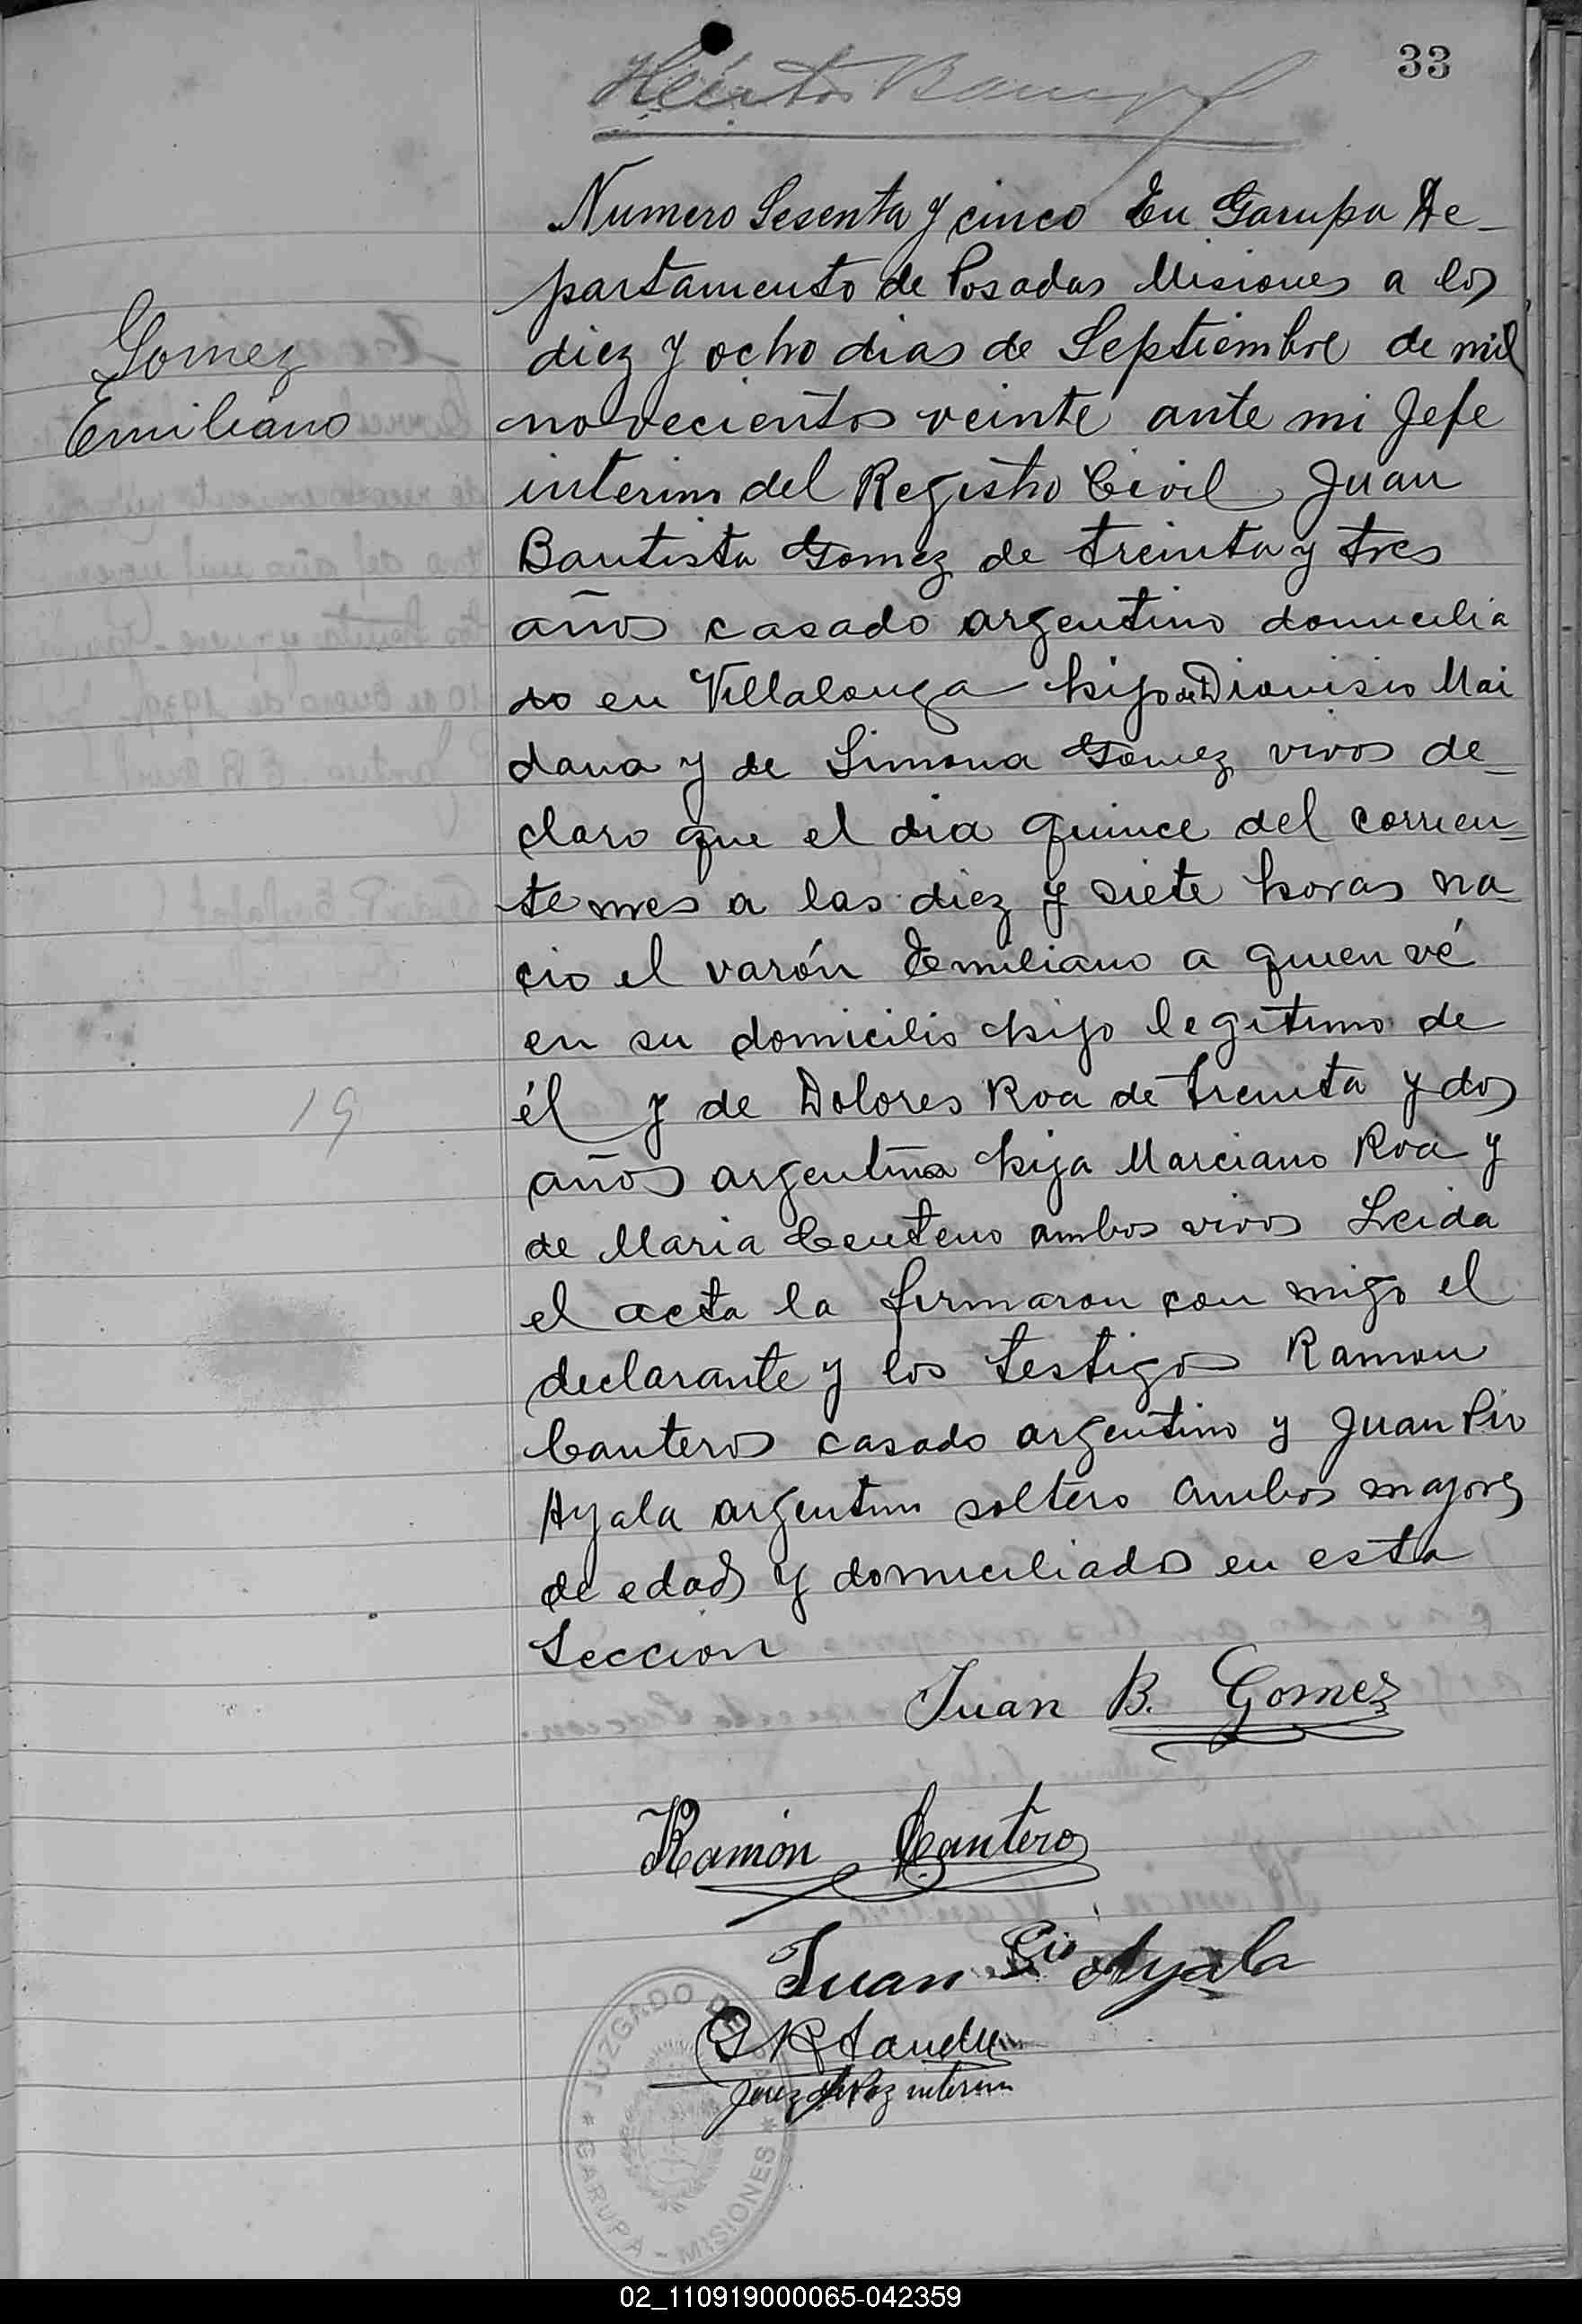 33
Numero Sesenta y cinco En Garupa De-
partamento de Posadas Misiones a los
diez y ocho dias de Septiembre de mil
Gomez
Emiliano
novecientos veinte ante mi Jefe
interino del Registro Civil Juan
Bautista Gomez de treinta y tres
años casado argentino domicilia
do en Villalonga hijo de Dionisio Mai
dana y de Simona Gomez vivos de-
claro que el dia quince del corrien-
te mes a las diez y siete horas na-
cio el varón Emiliano a quien vé
en su domicilio hijo legitimo de
él y de Dolores Roa de treinta y dos
19
años argentina hija Marciano Roa y
de Maria Centeno ambos vivos Leida
el acta la firmaron con migo el
declarante y los testigos Ramon
Canteros casado argentino y Juan Pio
Ayala argentino soltero ambos mayores
de edad y domiciliados en esta
Seccion
Juan B. Gomez
Ramón Cantero
Juan Pio Ayala
Juez de Paz interino
JUZGADO DE PAZ
GARUPÁ - MISIONES
02_110919000065-042359